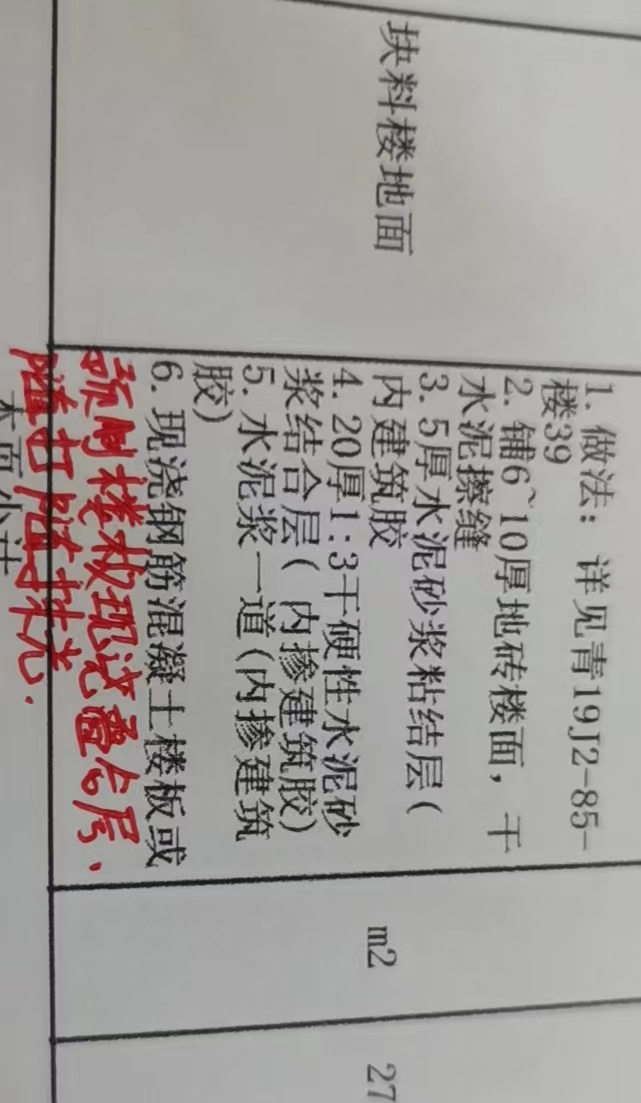 块料楼地面
1. 做法： 详见青19J2-85-
楼39
2. 铺6~10厚地砖楼面，干
水泥擦缝
3. 5厚水泥砂浆粘结层(
内建筑胶
4. 20厚1:3干硬性水泥砂
浆结合层( 内掺建筑胶)
5. 水泥浆一道(内掺建筑
胶)
6. 现浇钢筋混凝土楼板或
预制楼板现浇叠合层、
随打随抹光.
m2
27
本页小计